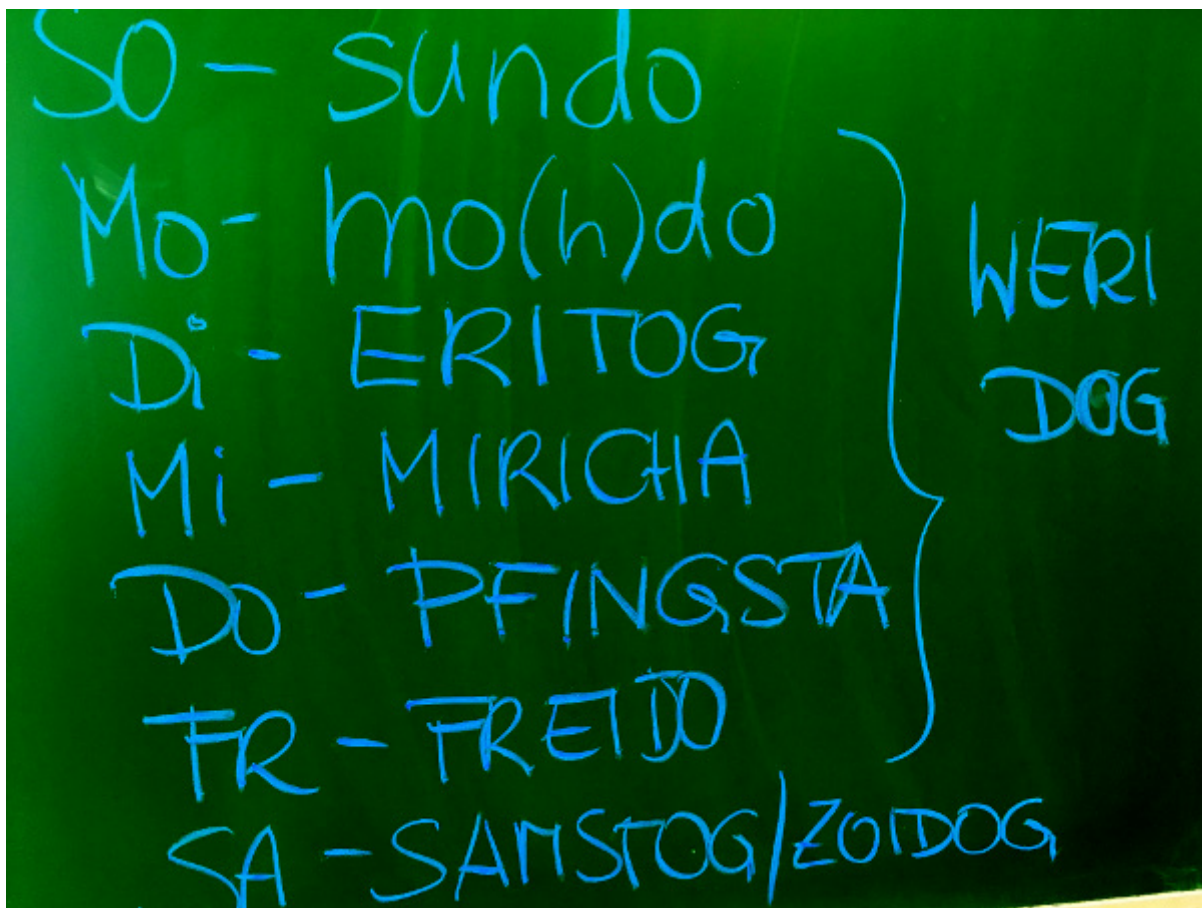 SO - sundo
Mo - mo(h)do
Di - ERITOG
Mi - MIRICHA
DO - PFINGSTA
FR - FREIDO
SA - SAMSTOG/ZOIDOG
WERI
DOG